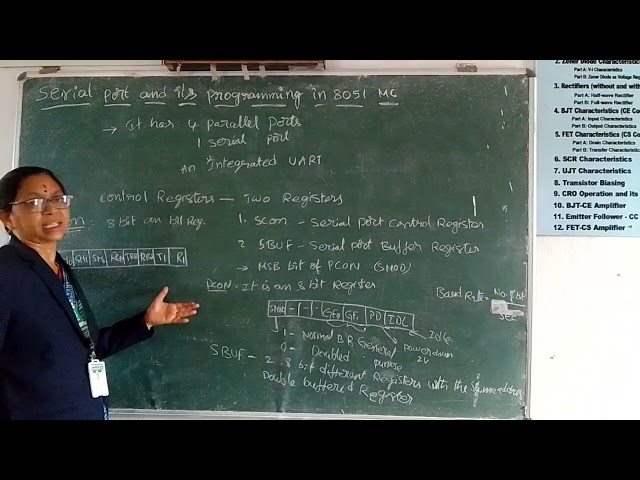 Serial port and its programming in 8051 MC
→ It has 4 parallel ports
1 serial port
An Integrated UART
Control Registers — Two Registers
: 8 bit an bit Reg.
1. SCON - Serial Port Control Register
2 SBUF - Serial port Buffer Register
→ MSB bit of PCON (SMOD)
SM1 SM2 REN TB8 RB8 TI RI
PCON - It is an 8 bit Register
Baud Rate = No. of bit
sec
SMOD - - - GF0 GF1 PD IDL
Idle
1 - Normal B.R General power down
0 - Doubled purpose
SBUF - 2, 8 bit different Registers with the same address
Double buffered Register
2. Zener Diode Characteristics
Part A: V-I Characteristics
Part B: Zener Diode as Voltage
3. Rectifiers (without and with
Part A: Half-wave Rectifier
Part B: Full-wave Rectifier
4. BJT Characteristics (CE Co
Part A: Input Characteristics
Part B: Output Characteristics
5. FET Characteristics (CS Co
Part A: Drain Characteristics
Part B: Transfer Characteristics
6. SCR Characteristics
7. UJT Characteristics
8. Transistor Biasing
9. CRO Operation and its
10. BJT-CE Amplifier
11. Emitter Follower - CC
12. FET-CS Amplifier